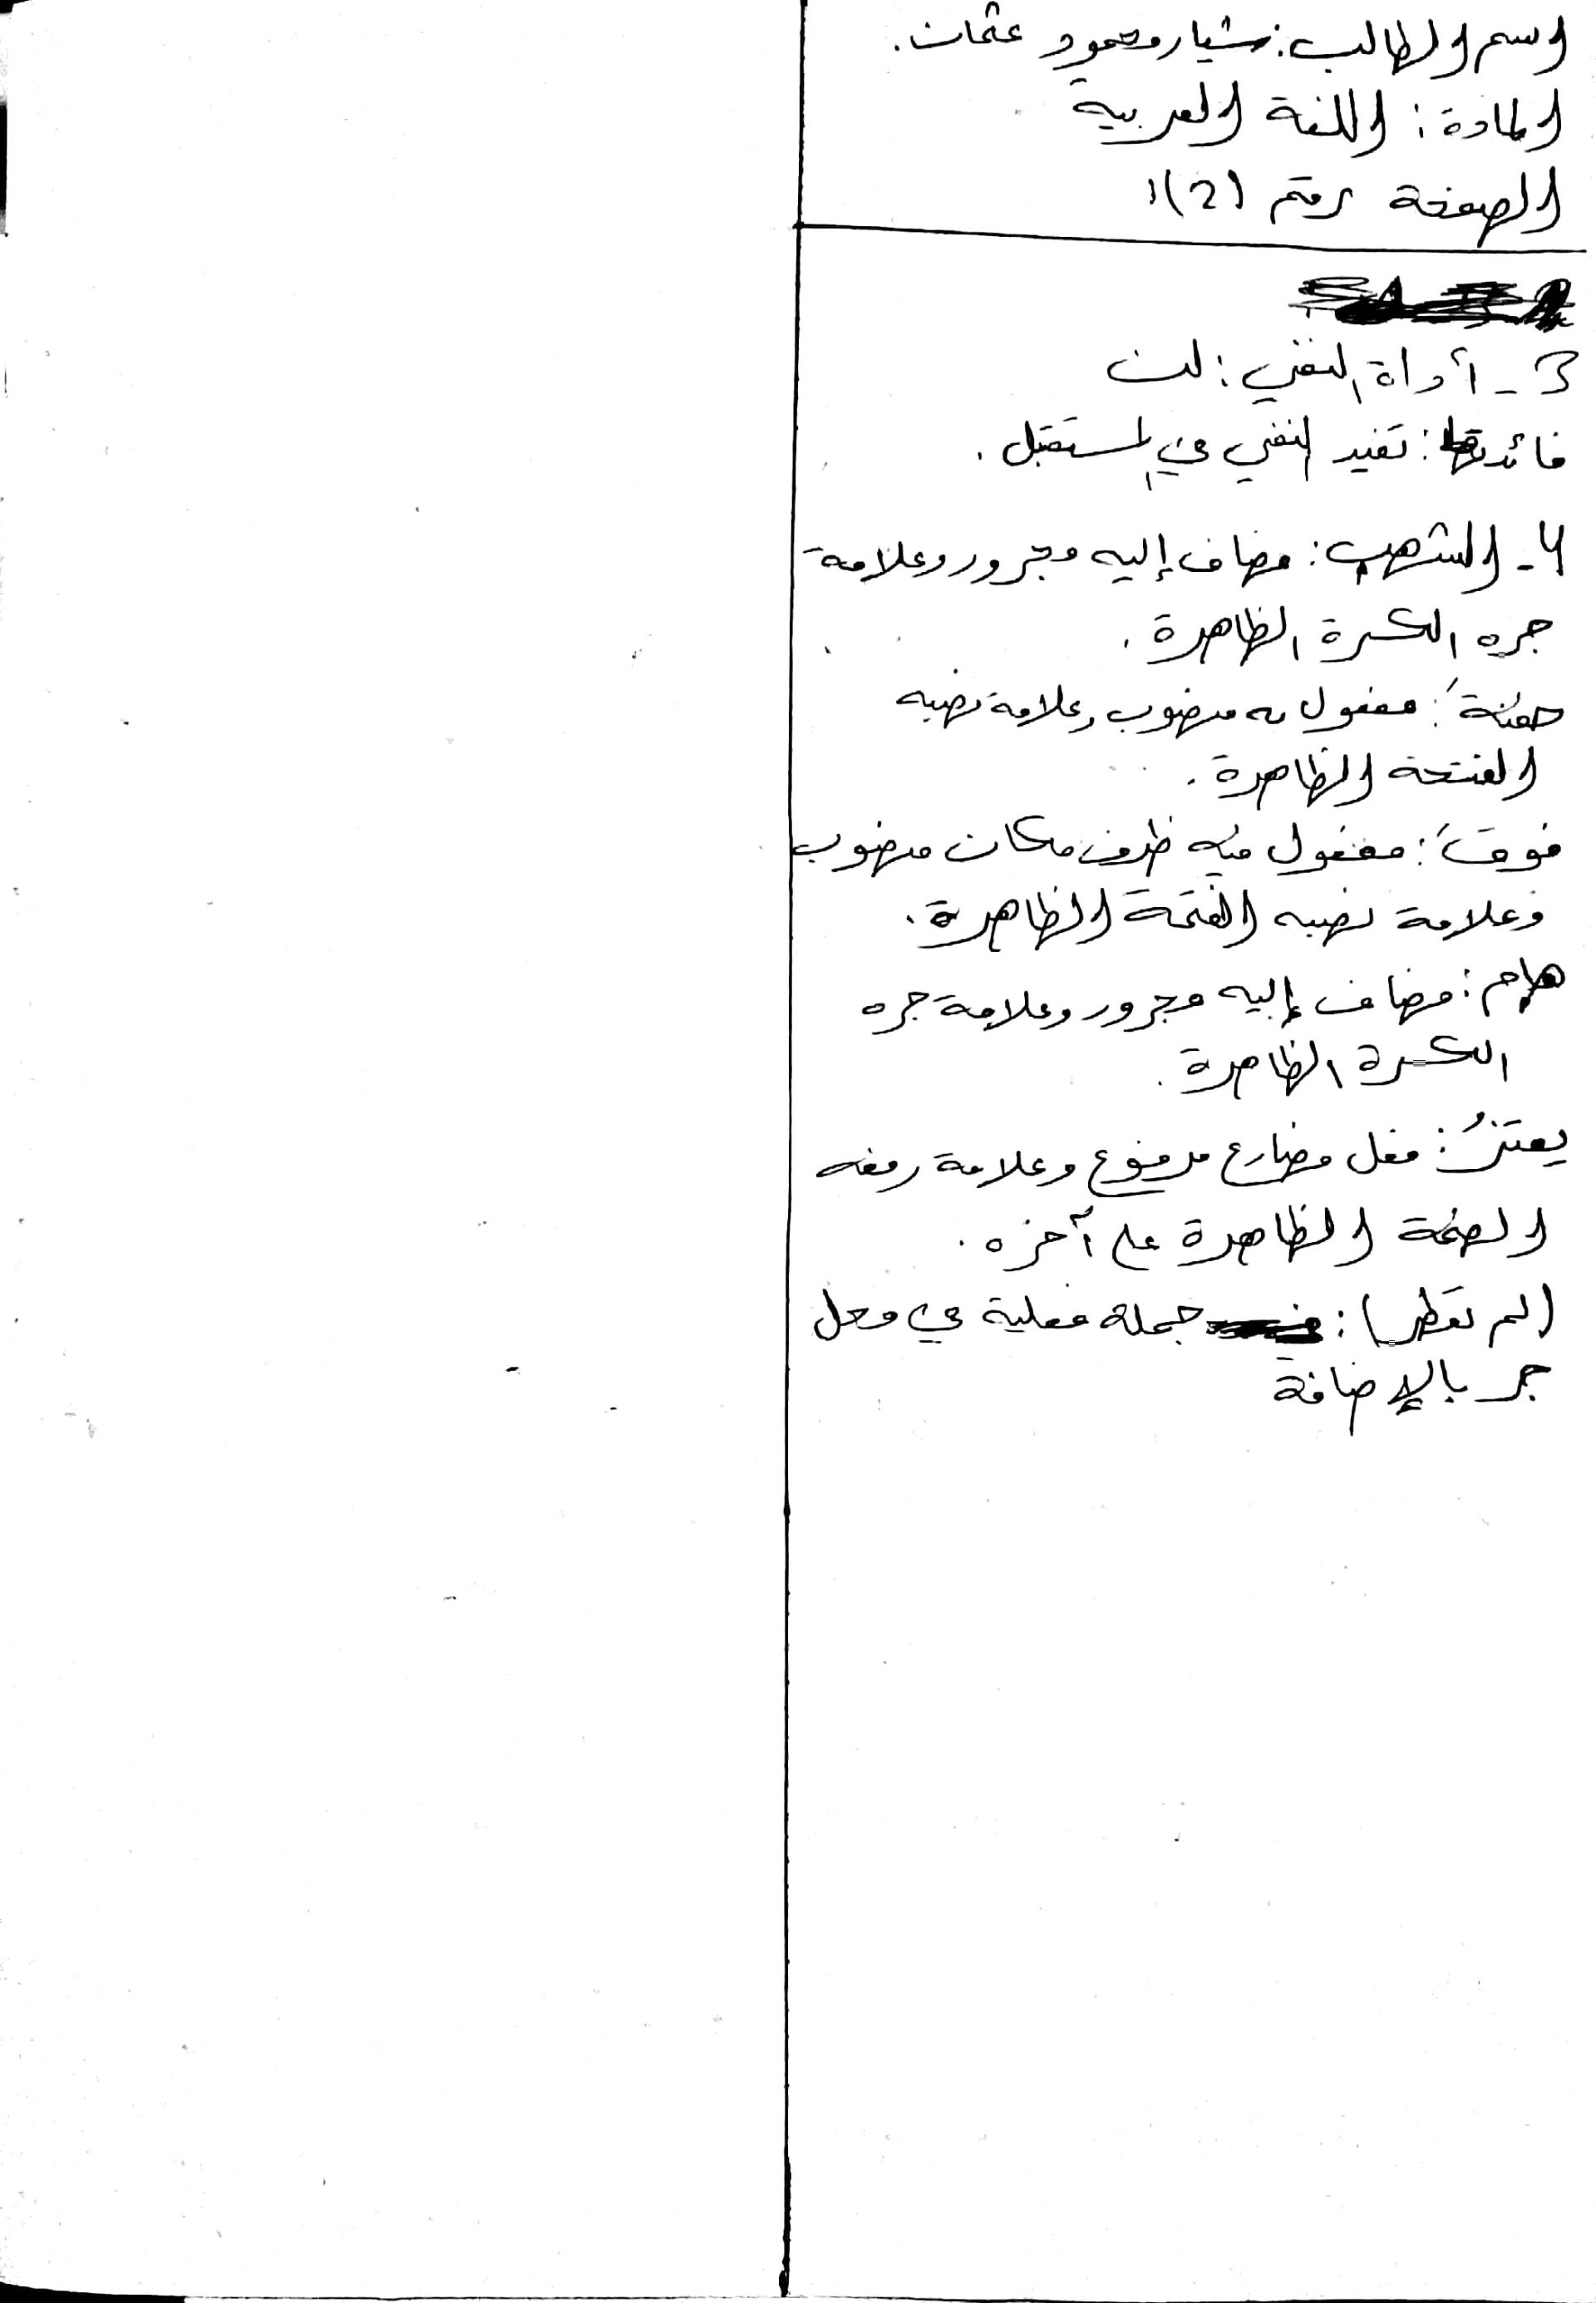 اسم الطالب: شيار محمود عثمان.
المادة: اللغة العربية
الصفحة رقم (2)
3 - أداة النفي: لن
فائدتها: تفيد النفي في المستقبل.
4 - الشهب: مضاف إليه مجرور وعلامة
جره الكسرة الظاهرة.
حفنةً: مفعول به منصوب وعلامة نصبه
الفتحة الظاهرة.
فوقَ: مفعول فيه ظرف مكان منصوب
وعلامة نصبه الفتحة الظاهرة.
هام: مضاف إليه مجرور وعلامة جره
الكسرة الظاهرة.
يعتزُ: فعل مضارع مرفوع وعلامة رفعه
الضمة الظاهرة على آخره.
(لم تطر): جملة فعلية في محل
جر بالإضافة